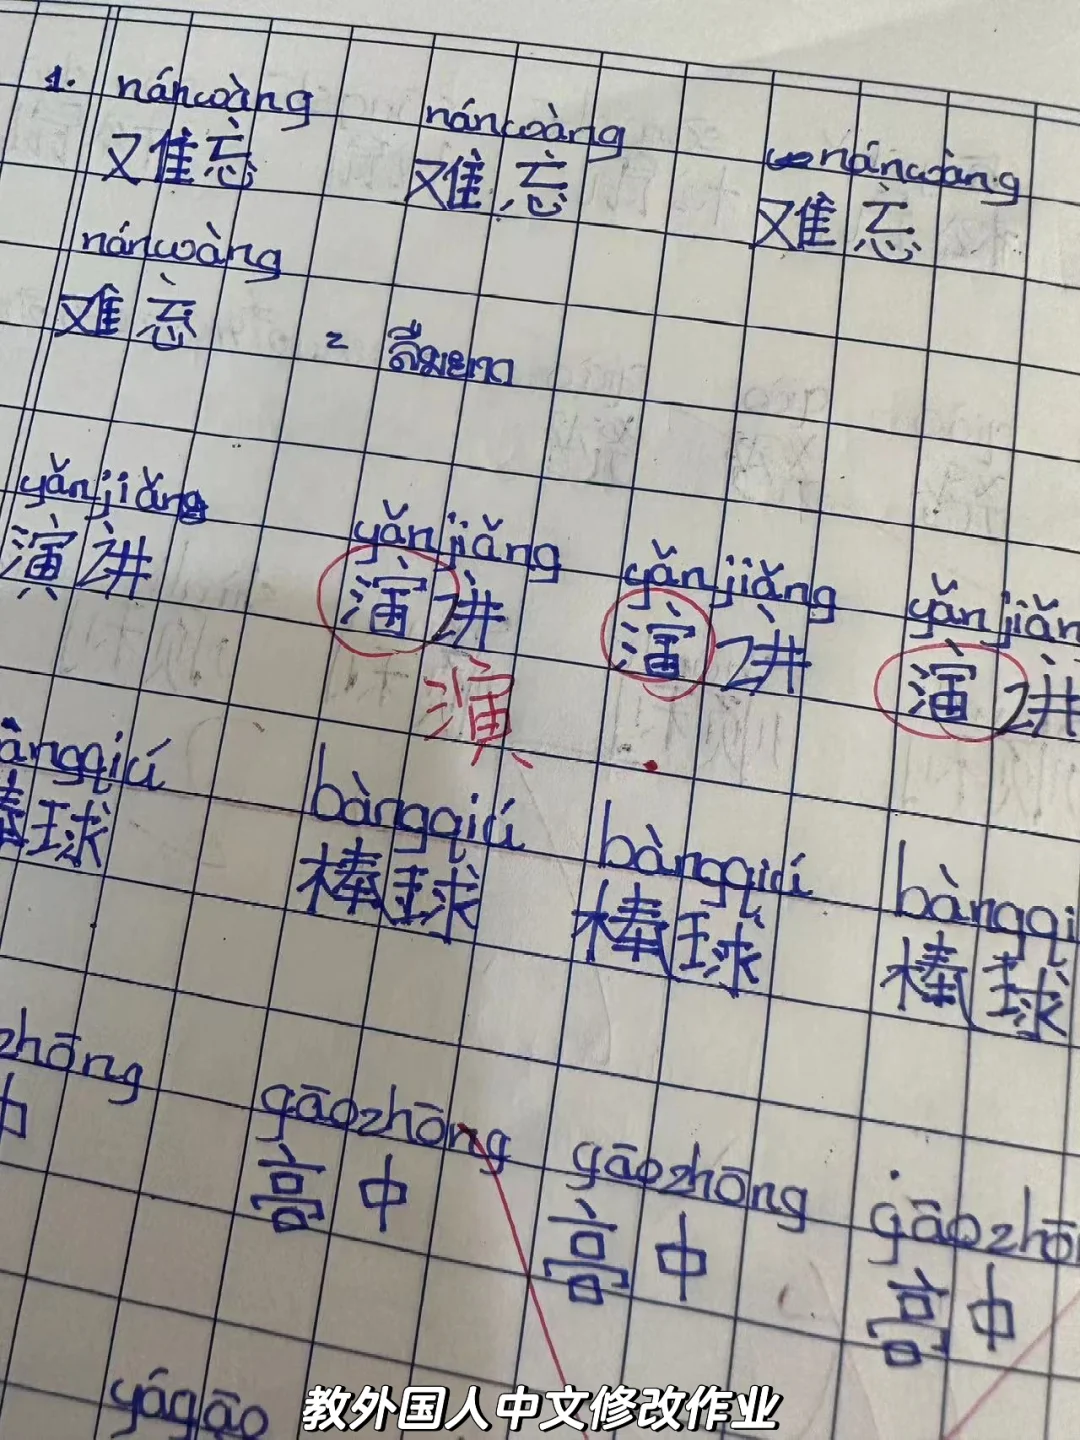 1. nánwàng nánwàng nánwàng
难忘 难忘 难忘
nánwàng
难忘 = ลืมยาก
yǎnjiǎng yǎnjiǎng yǎnjiǎng yǎnjiǎn
演讲 演讲 演讲 演讲
演
àngqiú bàngqiú bàngqiú bàngqi
棒球 棒球 棒球 棒球
zhōng gāozhōng gāozhōng gāozhō
中 高中 高中 高中
yágāo
教外国人中文修改作业